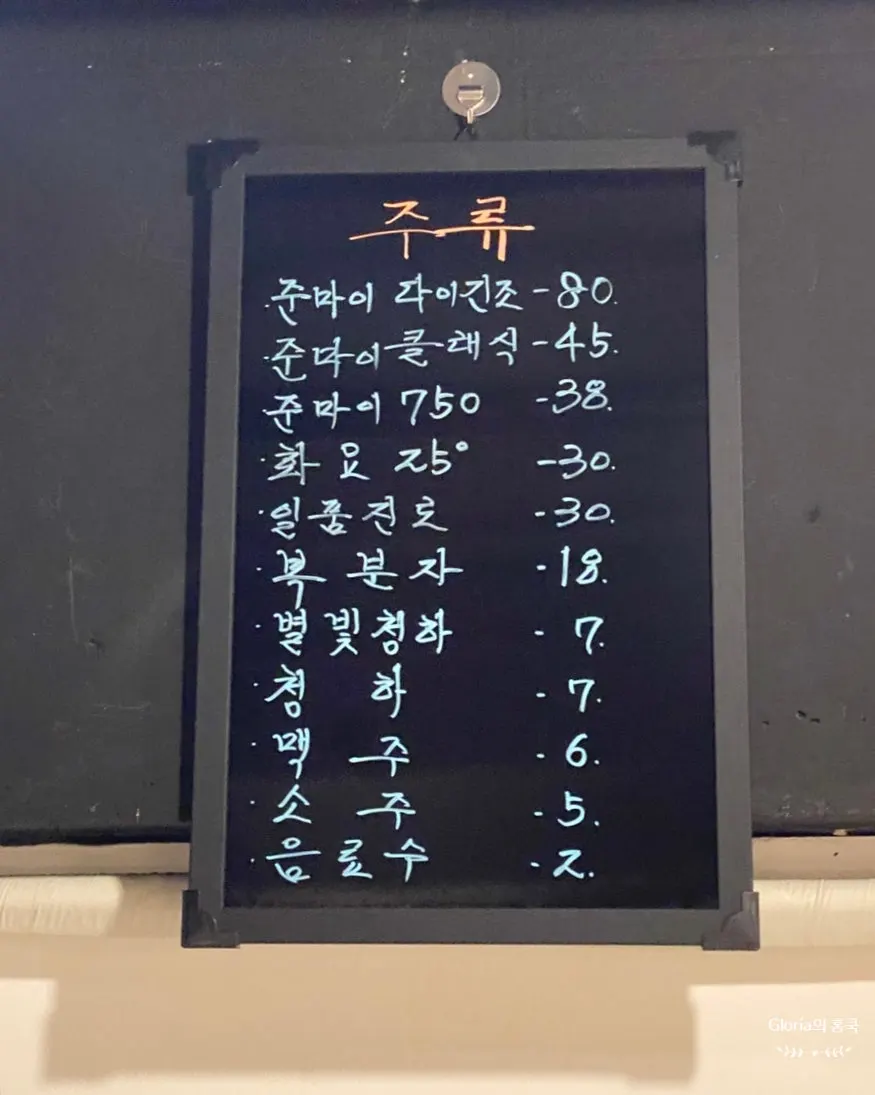 주류
·준마이 다이긴조 -80.
·준마이클래식 -45.
·준마이 750 -38.
·화요 25° -30.
·일품진로 -30.
·복분자 -18.
·별빛청하 -7.
·청하 -7.
·맥주 -6.
·소주 -5.
·음료수 -2.
Gloria의 홈쿡